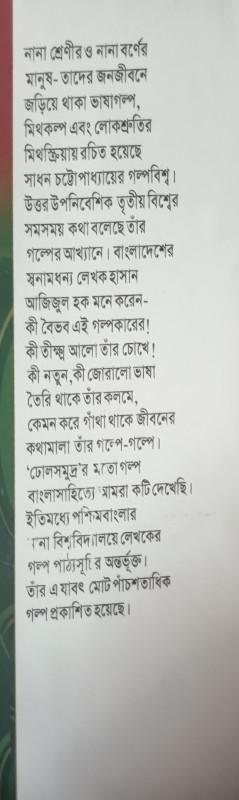 নানা শ্রেণীর ও নানা বর্ণের
মানুষ- তাদের জনজীবনে
জড়িয়ে থাকা ভাষাগল্প,
মিথকল্প এবং লোকশ্রুতির
মিথষ্ক্রিয়ায় রচিত হয়েছে
সাধন চট্টোপাধ্যায়ের গল্পবিশ্ব।
উত্তর উপনিবেশিক তৃতীয় বিশ্বের
সমসময় কথা বলেছে তাঁর
গল্পের আখ্যানে। বাংলাদেশের
স্বনামধন্য লেখক হাসান
আজিজুল হক মনে করেন-
কী বৈভব এই গল্পকারের!
কী তীক্ষ্ণ আলো তাঁর চোখে!
কী নতুন, কী জোরালো ভাষা
তৈরি থাকে তাঁর কলমে,
কেমন করে গাঁথা থাকে জীবনের
কথামালা তাঁর গল্পে-গল্পে।
'ঢোলসমুদ্র'র মতো গল্প
বাংলাসাহিত্যে আমরা কটি দেখেছি।
ইতিমধ্যে পশ্চিমবাংলার
নানা বিশ্ববিদ্যালয়ে লেখকের
গল্প পাঠ্যসূচির অন্তর্ভুক্ত।
তাঁর এ যাবৎ মোট পাঁচশতাধিক
গল্প প্রকাশিত হয়েছে।